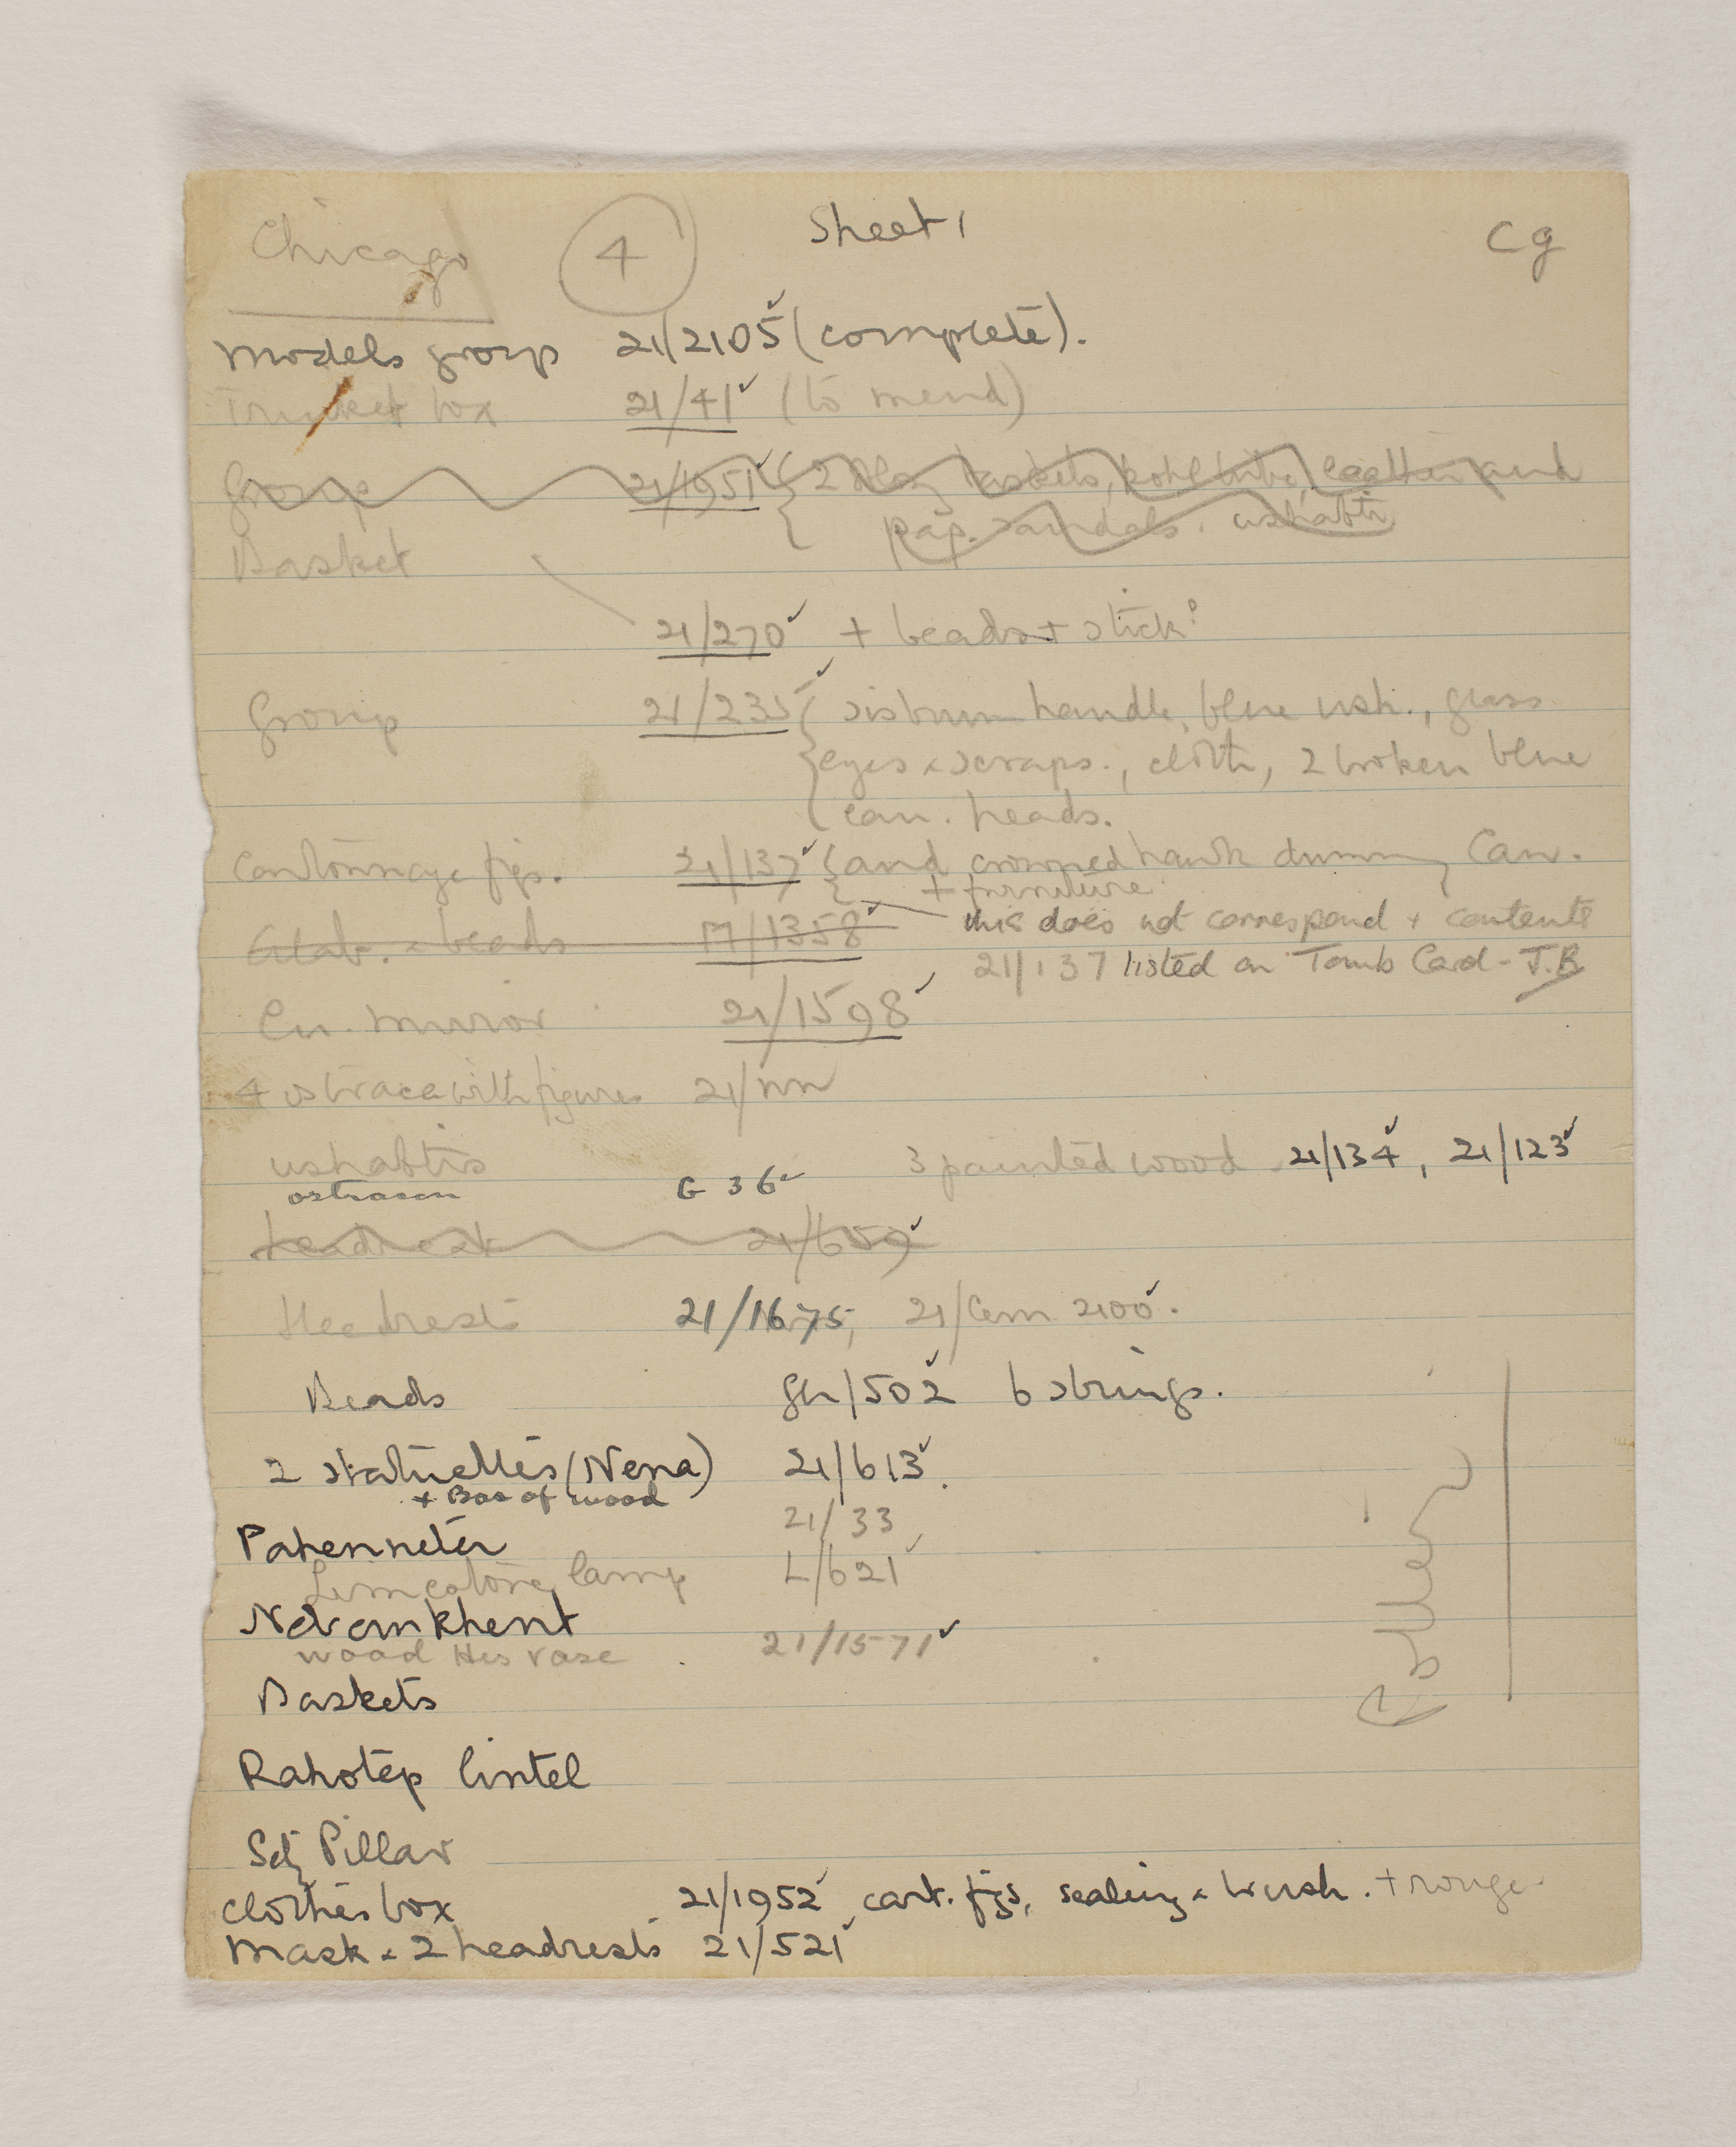 Chicago 4 Sheet 1 Cg
Models group 21/2105 ✓ (complete).
Trinket box 21/41 ✓ (to mend)
Group 21/1951 ✓ { 2 baskets, kohl tube, leather and
pap. sandals. ushabti
Basket
21/270 ✓ + beads + stick?
Group 21/235 ✓ { sistrum handle, blue ush., glass
eyes & scraps., cloth, 2 broken blue
can. heads.
Cartonnage figs. 21/137 ✓ { and crowned hawk dummy Can.
+ furniture
Alab. & beads M/1358 ✓ this does not correspond + contents
21/137 listed on Tomb Card - J.B
Cu. mirror 21/1598 ✓
4 ostraca with figures 21/nn
ushabtis 3 painted wood 21/134 ✓, 21/123 ✓
ostracon G 36 ✓
headrest 21/659 ✓
Headrests 21/1675, 21/Cem 2100 ✓.
Beads Gh/502 ✓ 6 strings.
2 statuettes (Nena) 21/613 ✓.
+ Box of wood
21/33
Pahenneter
Limestone lamp L/621 ✓
Nebankhent
wood Hes vase 21/1571 ✓
Baskets
Rahotep lintel
Sdj Pillar
clothes box 21/1952 ✓ cart. figs, sealing & brush. + rouge
Mask & 2 headrests 21/521 ✓